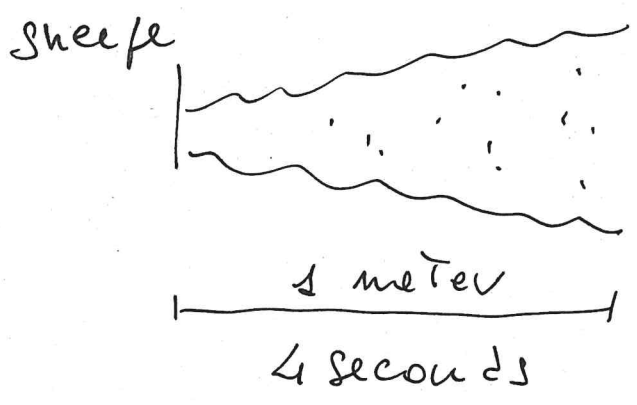 sneeze
1 meter
4 seconds